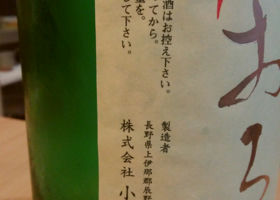 おろ
酒はお控え下さい。
てから。
量を。
して下さい。
製造者
長野県上伊那郡辰野
株式会社 小